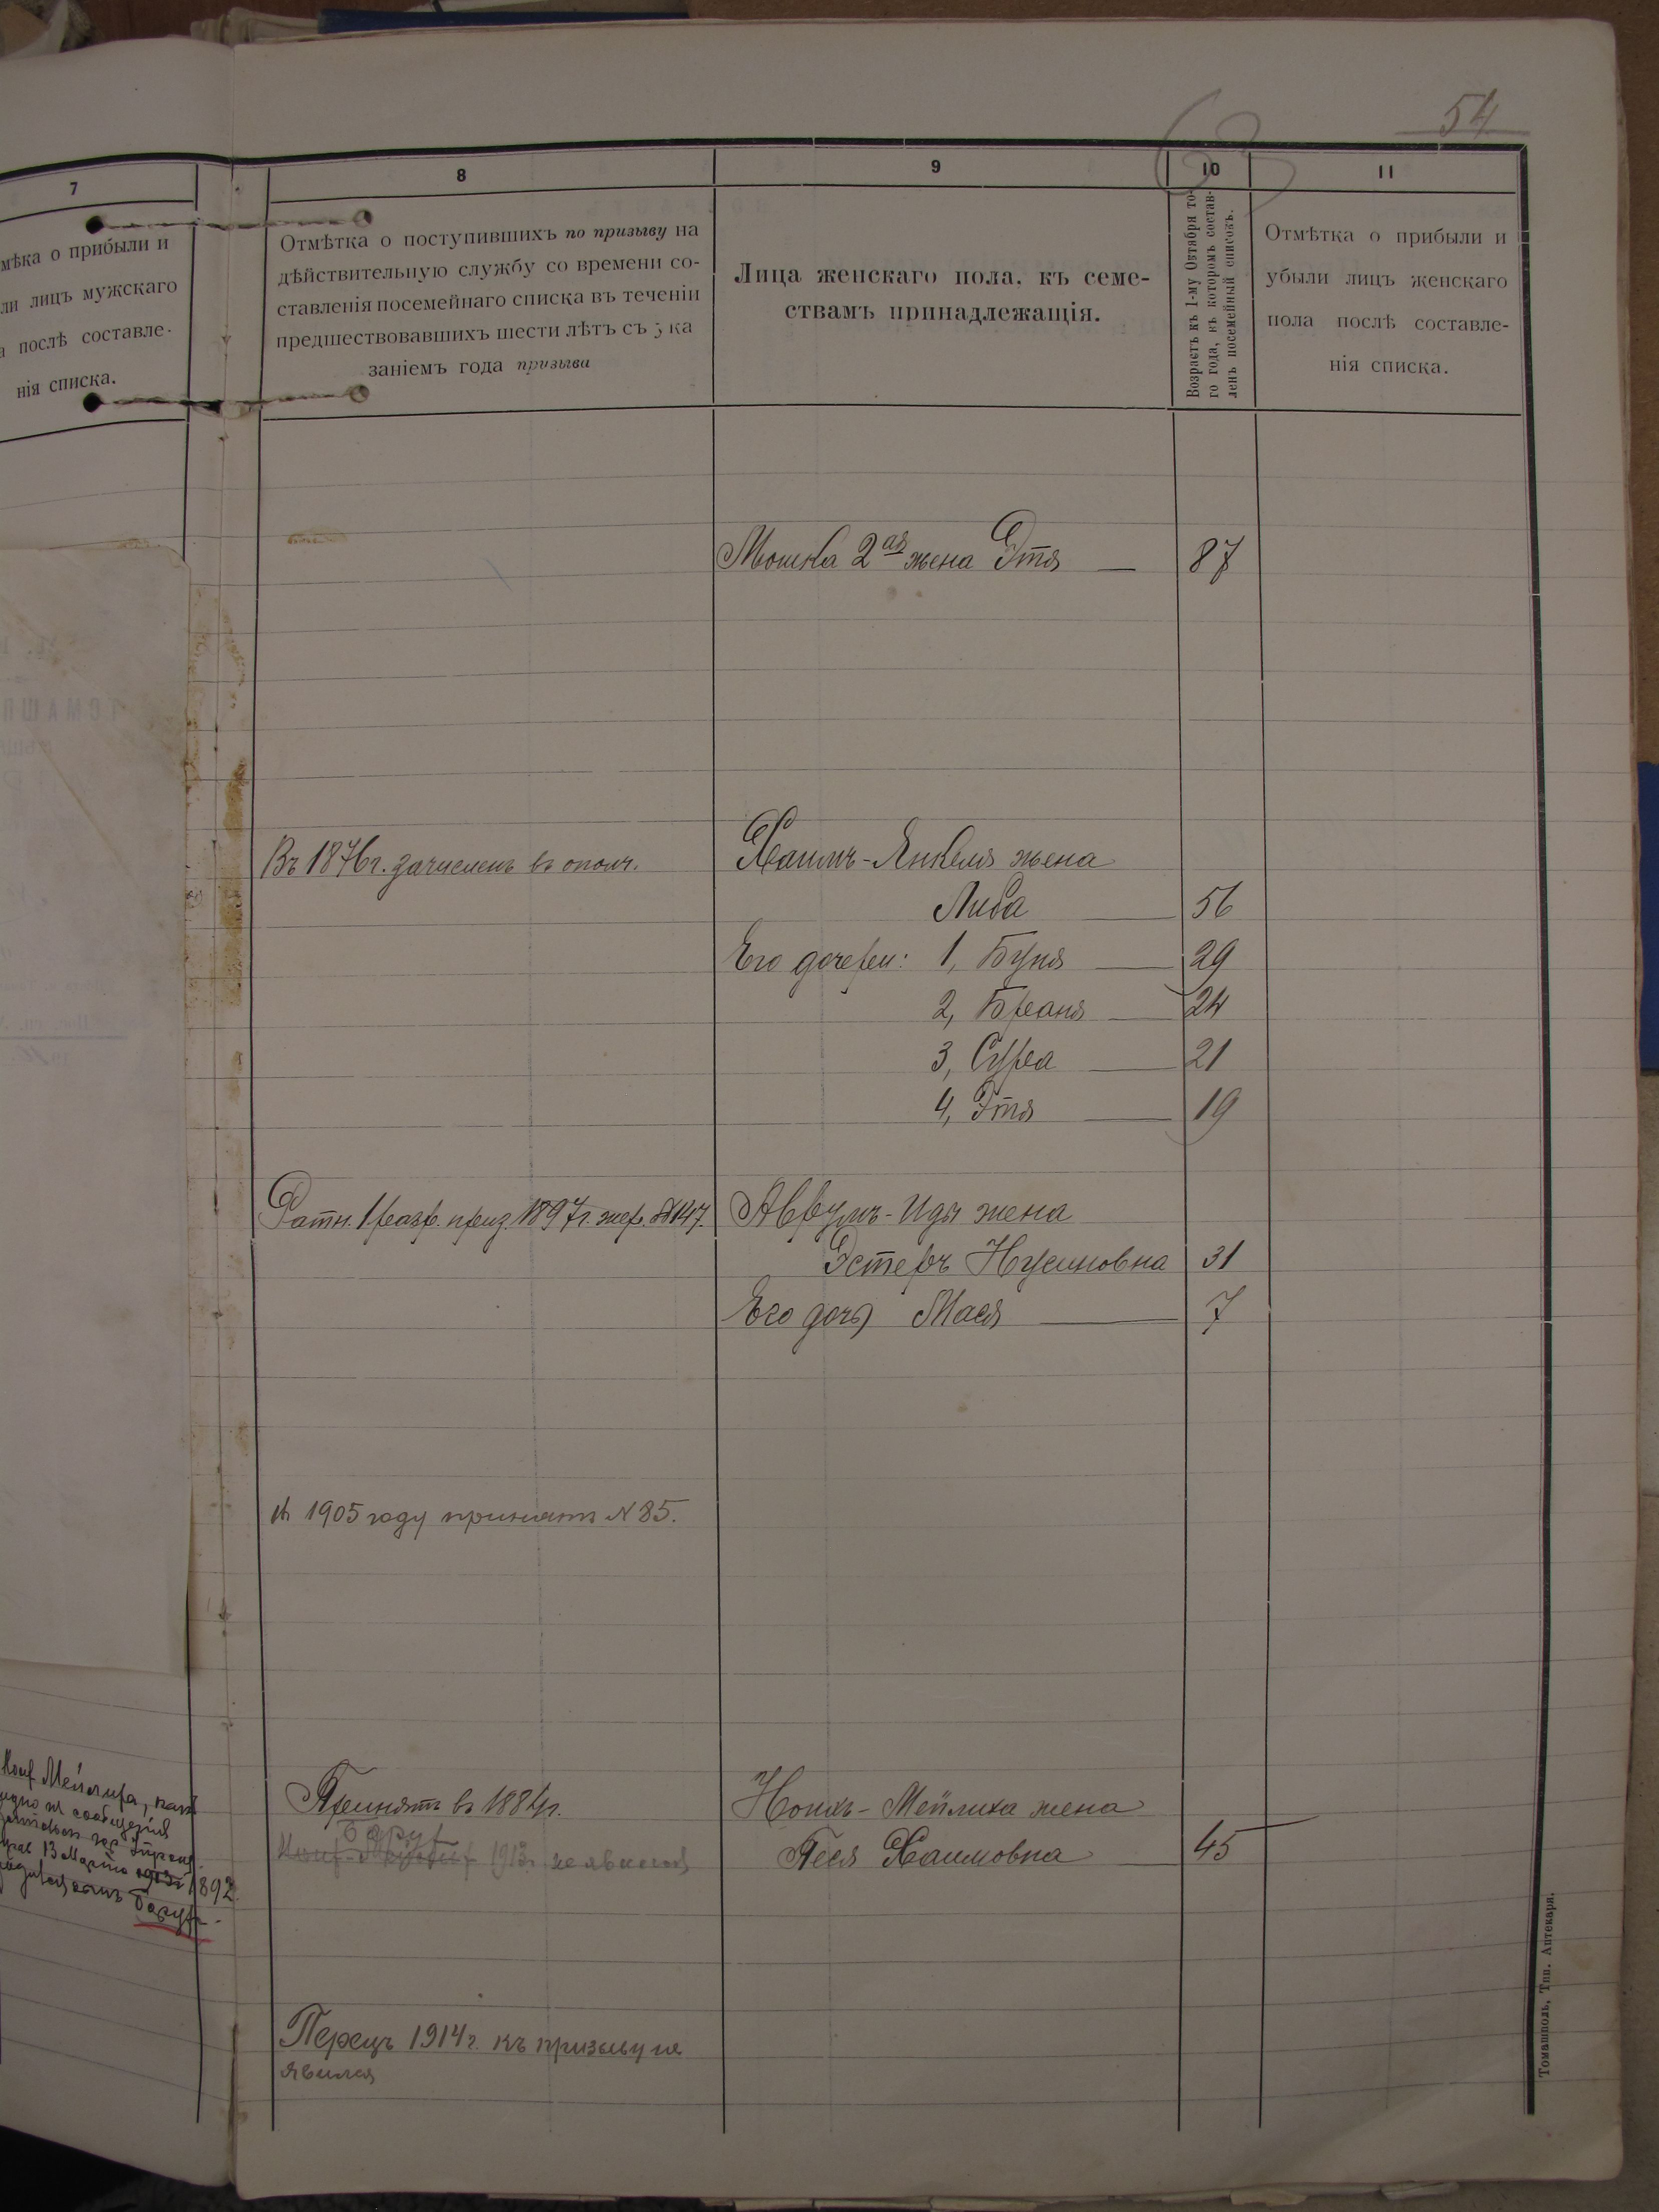 54
63
7
мѣка о прибыли и
ли лицъ мужскаго
а послѣ составле-
нія списка.
8
Отмѣтка о поступившихъ по призыву на
дѣйствительную службу со времени со-
ставленія посемейнаго списка въ теченіи
предшествовавшихъ шести лѣтъ съ ука
заніемъ года призыва
9
Лица женскаго пола, къ семе-
ствамъ принадлежащія.
10
Возрастъ къ 1-му Октября то-
го года, къ которомъ состав-
ленъ посемейный списокъ.
11
Отмѣтка о прибыли и
убыли лицъ женскаго
пола послѣ составле-
нія списка.
Мошка 2ая жена Этя — 87
Въ 1876г. зачисленъ въ ополч. Хаимъ-Янкеля жена
Либа 56
Его дочери: 1, Буня 29
2, Бреана 24
3, Сура 21
4, Этя 19
Ратн. 1 разр. приз. 1897г. жер. № 147. Аврумъ-Иды жена
Эстеръ Нусиновна 31
Его дочь Мася 7
въ 1905 году принятъ № 85.
Мейлиха, какъ
видно из сообщения
13 Марта 1892
Барух.
Принятъ въ 1884г. Ноихъ-Мейлиха жена
Барух
1913г. не явился Песя Хаимовна 45
Перецъ 1914г. къ призыву не
явился
Томашполь, Тип. Аптекаря.